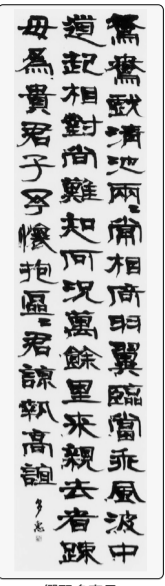 鴛鴦戲清池兩〻常相倚羽翼臨當乖風波中
道起相對尚難知何況萬餘里來親去者踈
毋為貴君子予懷抱區〻君諒執高誼